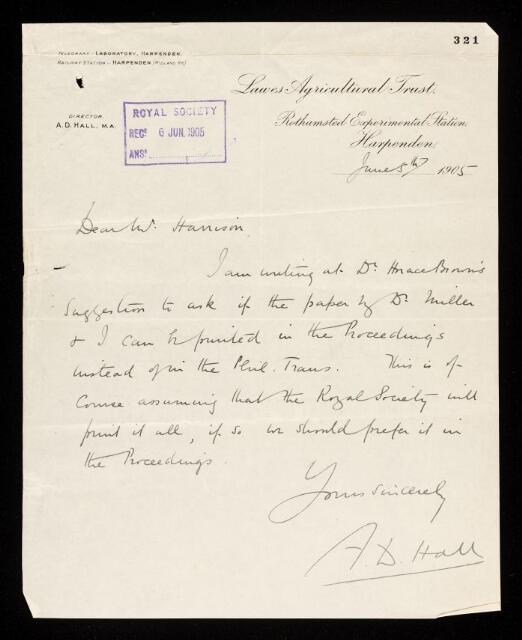 321
TELEGRAMS - LABORATORY, HARPENDEN.
RAILWAY STATION - HARPENDEN (MIDLAND RY.)
Lawes Agricultural Trust.
DIRECTOR
A.D. HALL, M.A.
Rothamsted Experimental Station,
Harpenden,
ROYAL SOCIETY
REC? 6 JUN. 1905
ANSD
June 5th 1905
Dear Mr. Harrison,
I am writing at Dr. Horace Brown's
suggestion to ask if the paper by Dr. Miller
& I can be printed in the Proceedings
instead of in the Phil. Trans. This is of
course assuming that the Royal Society will
print it all, if so we should prefer it in
the Proceedings.
Yours sincerely
A. D. Hall